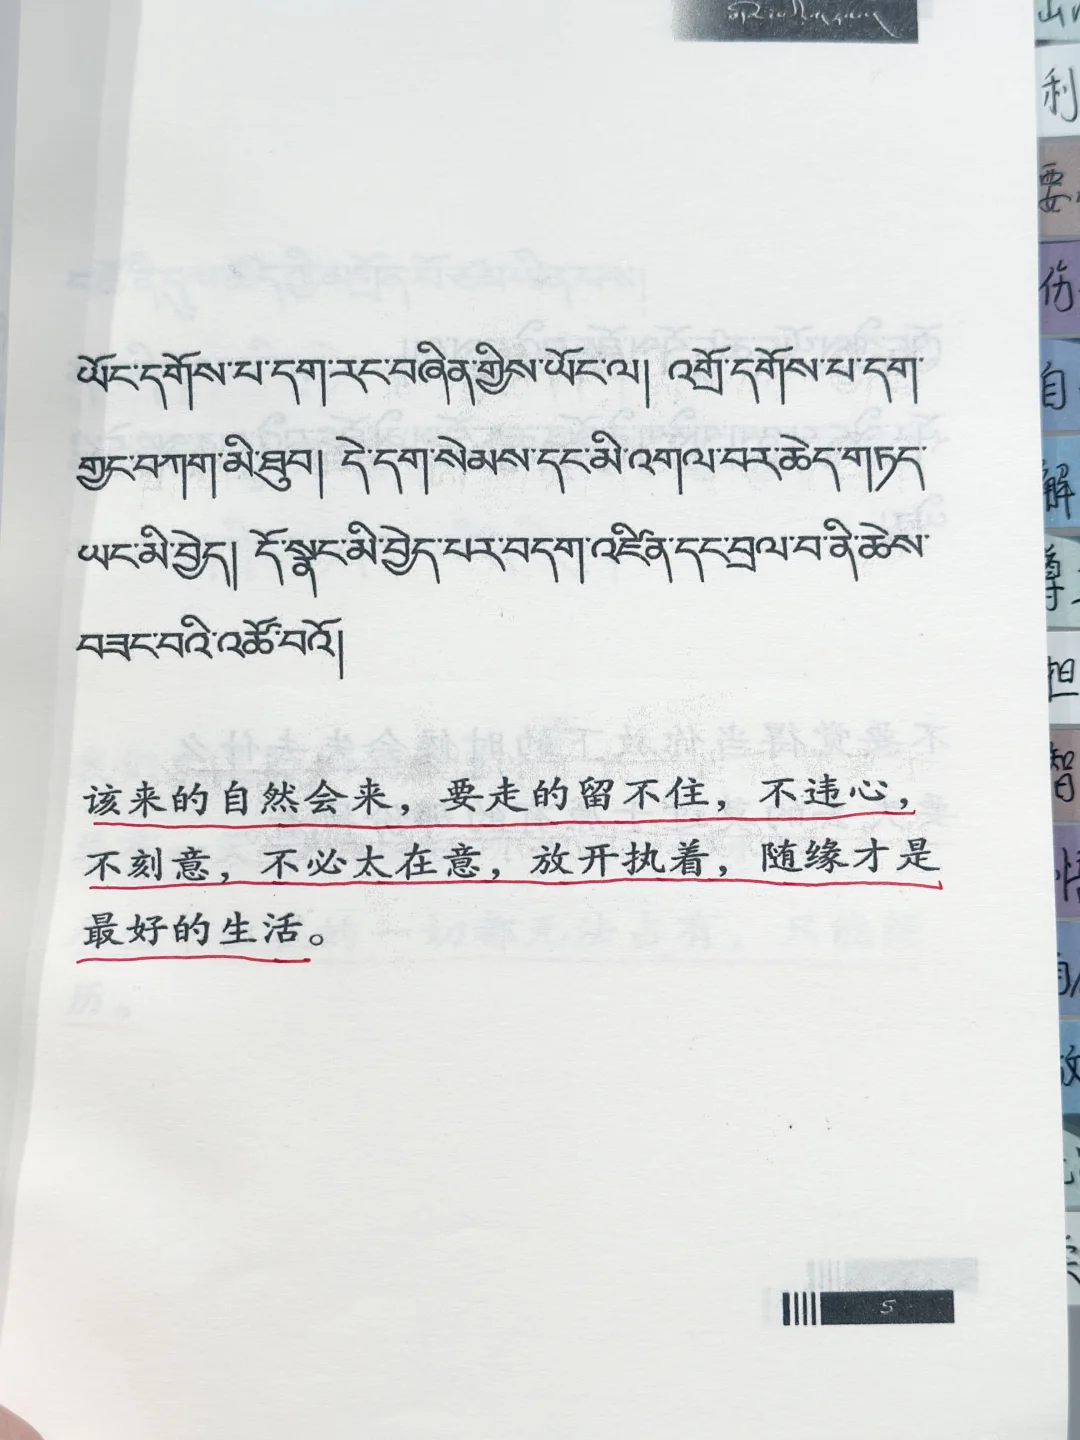 ཡོང་དགོས་པ་དག་རང་བཞིན་གྱིས་ཡོང་ལ། འགྲོ་དགོས་པ་དག་
གྱང་བཀག་མི་ཐུབ། དེ་དག་སེམས་དང་མི་འགལ་བར་ཆེད་གཏད་
ཡང་མི་བྱེད། དོ་སྣང་མི་བྱེད་པར་བདག་འཛིན་དང་བྲལ་བ་ནི་ཆེས་
བཟང་བའི་འཚོ་བའོ།
该来的自然会来，要走的留不住，不违心，
不刻意，不必太在意，放开执着，随缘才是
最好的生活。
5
利
要
伤
自
解
尊
担
智
悟
自
放